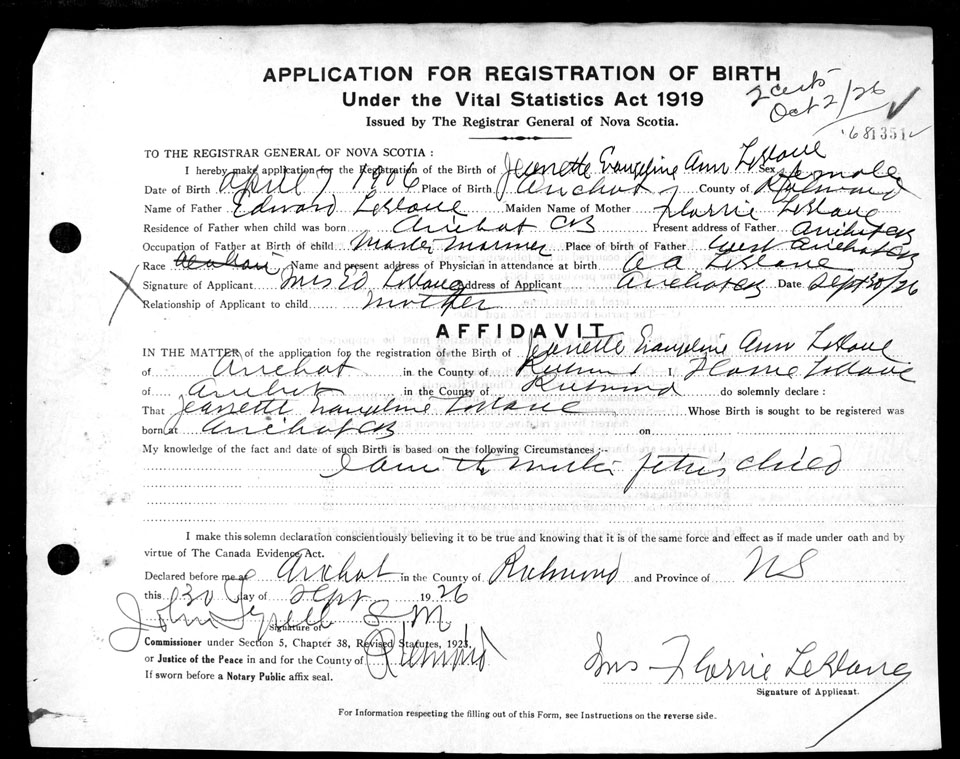 APPLICATION FOR REGISTRATION OF BIRTH
Under the Vital Statistics Act 1919
Issued by The Registrar General of Nova Scotia.
2 certs
Oct 2/26
681351
TO THE REGISTRAR GENERAL OF NOVA SCOTIA :
I hereby make application for the Registration of the Birth of Jeanette Evangeline Ann LeBlanc Sex female
Date of Birth April 7 1906 Place of Birth Arichat County of Richmond
Name of Father Edward LeBlanc Maiden Name of Mother Florrie LeBlanc
Residence of Father when child was born Arichat CB Present address of Father Arichat CB
Occupation of Father at Birth of child Master Mariner Place of birth of Father West Arichat CB
Race Acadian Name and present address of Physician in attendance at birth A A LeBlanc
Signature of Applicant Mrs Ed LeBlanc Address of Applicant Arichat CB Date Sept 30/26
Relationship of Applicant to child mother
AFFIDAVIT
IN THE MATTER of the application for the registration of the Birth of Jeanette Evangeline Ann LeBlanc
of Arichat in the County of Richmond I, Florrie LeBlanc
of Arichat in the County of Richmond do solemnly declare :
That Jeanette Evangeline LeBlanc Whose Birth is sought to be registered was
born at Arichat CB on
My knowledge of the fact and date of such Birth is based on the following Circumstances :-
I am the mother of this child
I make this solemn declaration conscientiously believing it to be true and knowing that it is of the same force and effect as if made under oath and by
virtue of The Canada Evidence Act.
Declared before me at Arichat in the County of Richmond and Province of NS
this 30 day of Sept 1926
John S M
Signature of
Commissioner under Section 5, Chapter 38, Revised Statutes, 1923,
or Justice of the Peace in and for the County of Richmond
If sworn before a Notary Public affix seal.
Mrs Florrie LeBlanc
Signature of Applicant.
For Information respecting the filling out of this Form, see Instructions on the reverse side.